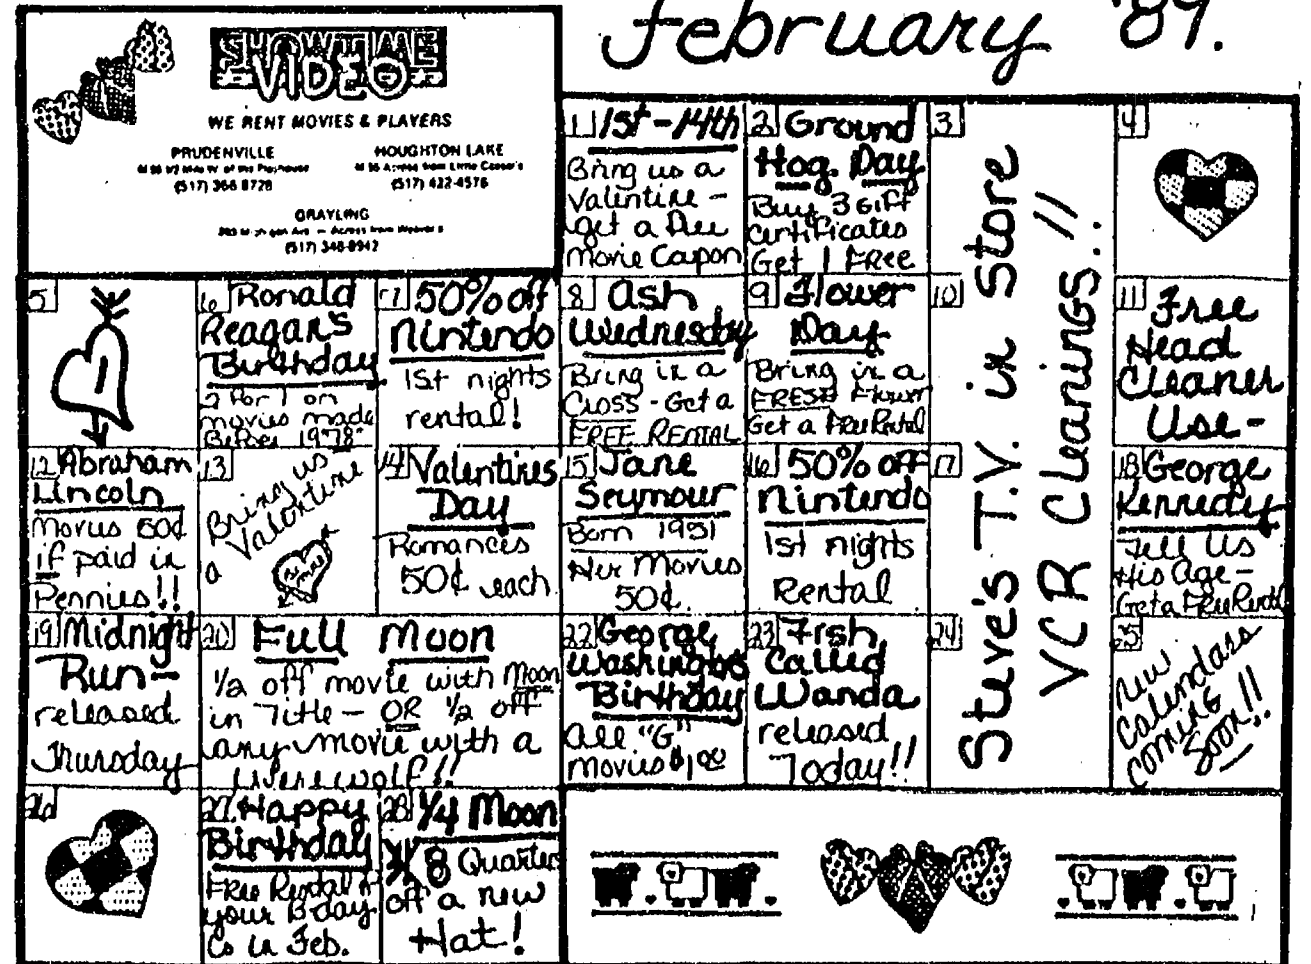 February '89.
SHOWTIME
VIDEO
WE RENT MOVIES & PLAYERS
PRUDENVILLE
M 55 1/2 Mile W. of the Playhouse
(517) 366-8728
HOUGHTON LAKE
M 55 Across from Little Caesar's
(517) 422-4576
GRAYLING
Michigan Ave. — Across from Weaver's
(517) 348-8942
1 1st-14th
Bring us a
Valentine -
get a Free
Movie Coupon
2 Ground
Hog Day
Buy 3 Gift
Certificates
Get 1 FREE
3
4
5
6 Ronald
Reagan's
Birthday
2 for 1 on
movies made
Before 1978
7 50% off
Nintendo
1st nights
rental!
8 Ash
Wednesday
Bring in a
Cross - Get a
FREE RENTAL
9 Flower
Day
Bring in a
FRESH Flower
Get a Free Rental
10
11 Free
Head
Cleaner
Use -
12 Abraham
Lincoln
Movies 50¢
if paid in
Pennies!!
13
Bring us
a Valentine
Be mine
14 Valentines
Day
Romances
50¢ each
15 Jane
Seymour
Born 1951
Her Movies
50¢.
16 50% off
Nintendo
1st nights
Rental
17
Steve's T.V. in Store
VCR Cleanings..!!
18 George
Kennedy
Tell Us
His Age -
Get a Free Rental
19 Midnight
Run -
released
Thursday
20 Full Moon
1/2 off movie with Moon
in Title - OR 1/2 off
any movie with a
Werewolf!!
22 George
Washingtons
Birthday
All "G"
movies $1.00
23 Fish
Called
Wanda
released
Today!!
24
25
New
Calendars
coming
Soon!!
26
27 Happy
Birthday
Free Rental if
your B-day
is in Feb.
28 1/4 Moon
8 Quarters
off a new
Hat!